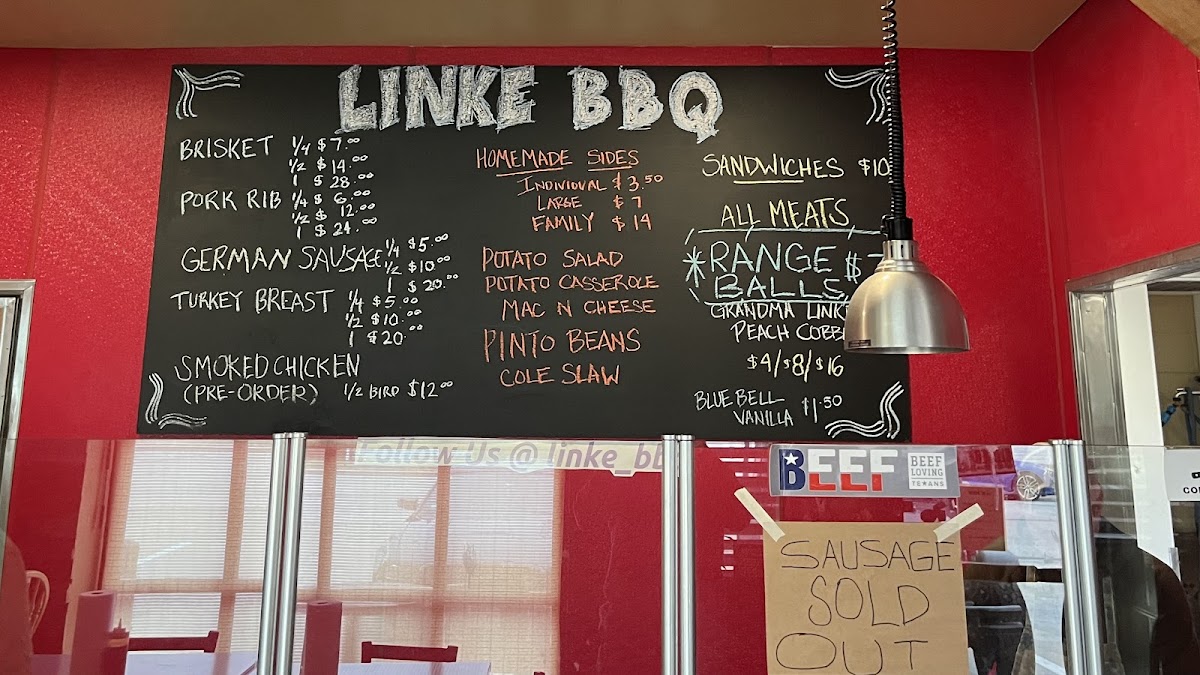 LINKE BBQ
BRISKET 1/4 $7.00
1/2 $14.00
1 $28.00
PORK RIB 1/4 $6.00
1/2 $12.00
1 $24.00
GERMAN SAUSAGE 1/4 $5.00
1/2 $10.00
1 $20.00
TURKEY BREAST 1/4 $5.00
1/2 $10.00
1 $20.00
SMOKED CHICKEN
(PRE-ORDER) 1/2 BIRD $12.00
HOMEMADE SIDES
INDIVIDUAL $3.50
LARGE $7
FAMILY $14
POTATO SALAD
POTATO CASSEROLE
MAC N CHEESE
PINTO BEANS
COLE SLAW
SANDWICHES $10
ALL MEATS
*RANGE $
BALLS
GRANDMA LINK
PEACH COBB
$4/$8/$16
BLUE BELL
VANILLA $1.50
Follow Us @ linke_bb
BEEF
BEEF
LOVING
TEXANS
SAUSAGE
SOLD
OUT